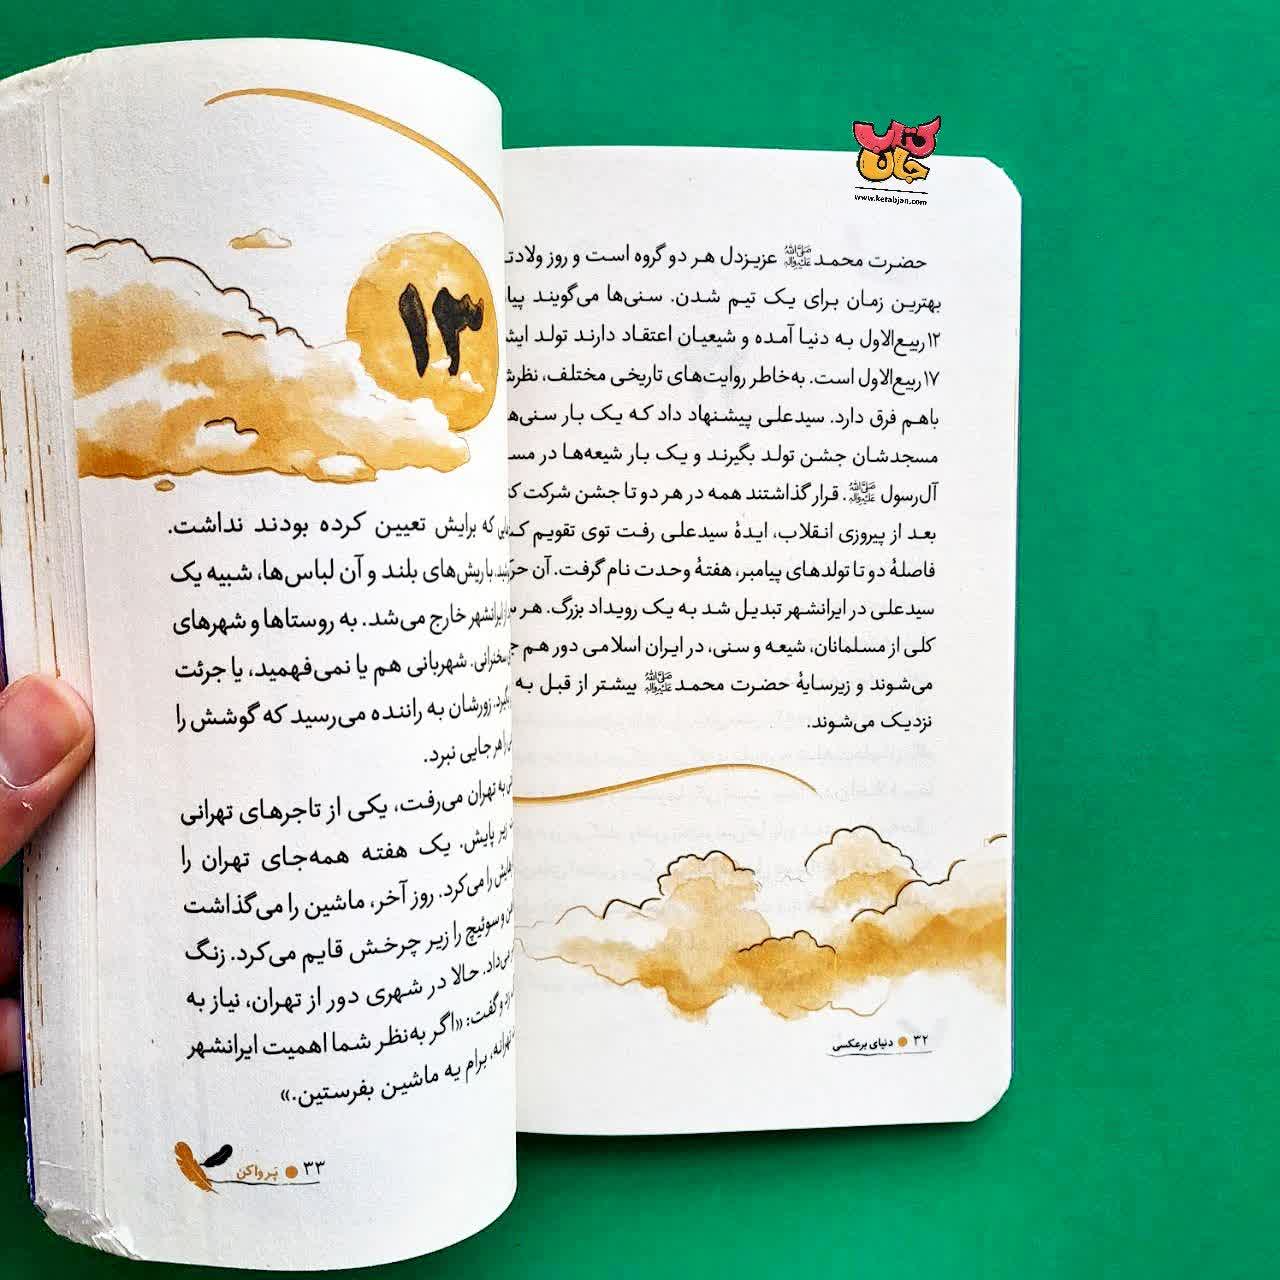 کتاب
جان
www.ketabjan.com
حضرت محمد ﷺ عزیزدل هر دو گروه است و روز ولادت
بهترین زمان برای یک تیم شدن. سنی‌ها می‌گویند
۱۲ربیع‌الاول به دنیا آمده و شیعیان اعتقاد دارند تولد
۱۷ربیع‌الاول است. به‌خاطر روایت‌های تاریخی مختلف،
باهم فرق دارد. سیدعلی پیشنهاد داد که یک بار
مسجدشان جشن تولد بگیرند و یک بار شیعه‌ها در
آل‌رسول ﷺ. قرار گذاشتند همه در هر دو تا جشن شرکت
بعد از پیروزی انقلاب، ایدهٔ سیدعلی رفت توی تقویم
فاصلهٔ دو تا تولدهای پیامبر، هفتهٔ وحدت نام گرفت. آن
سیدعلی در ایرانشهر تبدیل شد به یک رویداد بزرگ. هر
کلی از مسلمانان، شیعه و سنی، در ایران اسلامی دور هم
می‌شوند و زیرسایهٔ حضرت محمد ﷺ بیشتر از قبل به
نزدیک می‌شوند.
۳۲ ● دنیای برعکسی
۱۳
که برایش تعیین کرده بودند نداشت.
با ریش‌های بلند و آن لباس‌ها، شبیه یک
ایرانشهر خارج می‌شد. به روستاها و شهرهای
سخنرانی. شهربانی هم یا نمی‌فهمید، یا جرئت
زورشان به راننده می‌رسید که گوشش را
هرجایی نبرد.
به تهران می‌رفت، یکی از تاجرهای تهرانی
زیر پایش. یک هفته همه‌جای تهران را
را می‌کرد. روز آخر، ماشین را می‌گذاشت
و سوئیچ را زیر چرخش قایم می‌کرد. زنگ
می‌داد. حالا در شهری دور از تهران، نیاز به
و گفت: «اگر به‌نظر شما اهمیت ایرانشهر
برام یه ماشین بفرستین.»
۳۳ ● پَر واکن